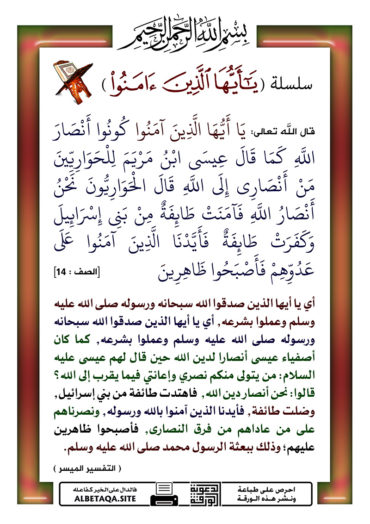 بسم الله الرحمن الرحيم
سلسلة ( يَـٰٓأَيُّهَا ٱلَّذِينَ ءَامَنُوا۟ )
قال الله تعالى: يَا أَيُّهَا الَّذِينَ آمَنُوا كُونُوا أَنْصَارَ
اللَّهِ كَمَا قَالَ عِيسَى ابْنُ مَرْيَمَ لِلْحَوَارِيِّينَ
مَنْ أَنْصَارِي إِلَى اللَّهِ قَالَ الْحَوَارِيُّونَ نَحْنُ
أَنْصَارُ اللَّهِ فَآمَنَتْ طَائِفَةٌ مِنْ بَنِي إِسْرَائِيلَ
وَكَفَرَتْ طَائِفَةٌ فَأَيَّدْنَا الَّذِينَ آمَنُوا عَلَى
عَدُوِّهِمْ فَأَصْبَحُوا ظَاهِرِينَ [الصف : 14]
أي يا أيها الذين صدقوا الله سبحانه ورسوله صلى الله عليه
وسلم وعملوا بشرعه, أي يا أيها الذين صدقوا الله سبحانه
ورسوله صلى الله عليه وسلم وعملوا بشرعه, كما كان
أصفياء عيسى أنصارا لدين الله حين قال لهم عيسى عليه
السلام: من يتولى منكم نصري وإعانتي فيما يقرب إلى الله؟
قالوا: نحن أنصار دين الله, فاهتدت طائفة من بني إسرائيل,
وضلت طائفة, فأيدنا الذين آمنوا بالله ورسوله, ونصرناهم
على من عاداهم من فرق النصارى, فأصبحوا ظاهرين
عليهم؛ وذلك ببعثة الرسول محمد صلى الله عليه وسلم.
( التفسير الميسر )
احرص على طباعة
ونشر هذه الورقة
الورقة الدعوية
فالدال على الخير كفاعله
ALBETAQA.SITE